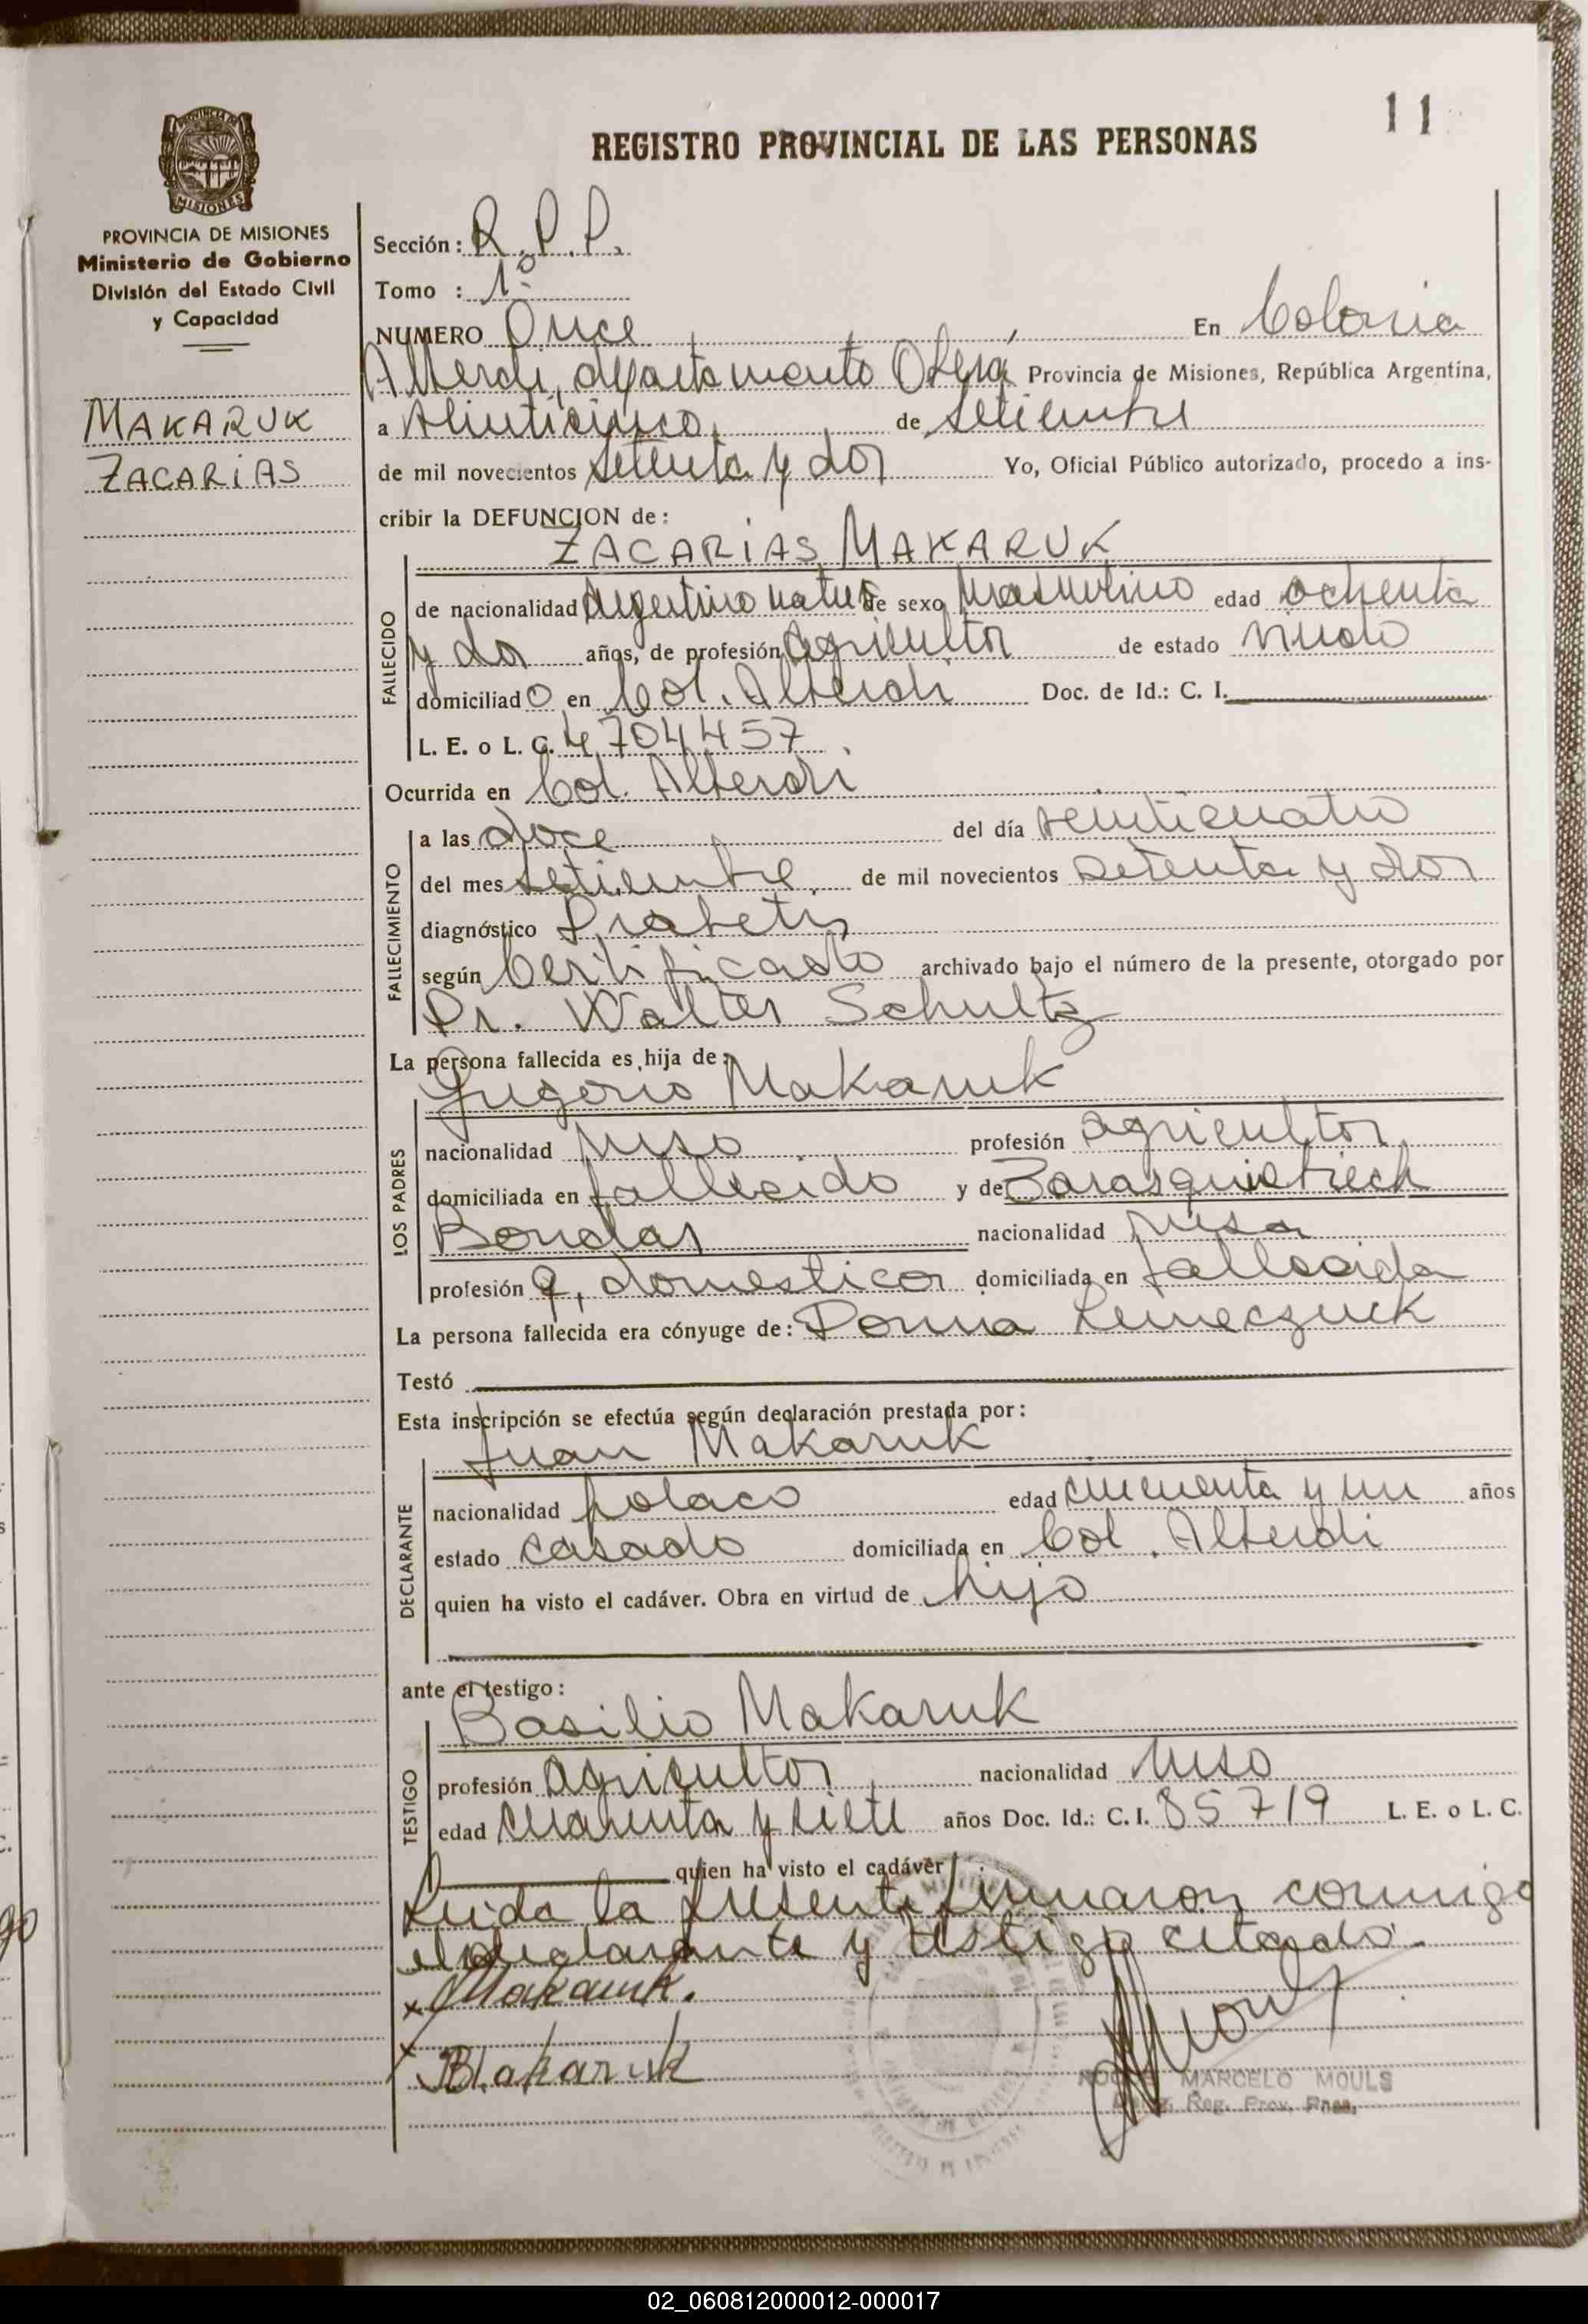 11
REGISTRO PROVINCIAL DE LAS PERSONAS
PROVINCIA DE MISIONES
Ministerio de Gobierno
División del Estado Civil
y Capacidad
MAKARUK
ZACARIAS
Sección: R.P.P.
Tomo : 1º
NUMERO Once En Colonia
Alberdi, departamento Oberá Provincia de Misiones, República Argentina,
a veinticinco de setiembre
de mil novecientos setenta y dos Yo, Oficial Público autorizado, procedo a ins-
cribir la DEFUNCION de:
ZACARIAS MAKARUK
FALLECIDO
de nacionalidad Argentino natur de sexo masculino edad ochenta
y dos años, de profesión agricultor de estado viudo
domiciliado en Col. Alberdi Doc. de Id.: C. I.
L. E. o L. C. 4704457
Ocurrida en Col. Alberdi
FALLECIMIENTO
a las doce del día veinticuatro
del mes setiembre de mil novecientos setenta y dos
diagnóstico Diabetis
según Certificado archivado bajo el número de la presente, otorgado por
Dr. Walter Schultz
La persona fallecida es hija de:
LOS PADRES
Gregorio Makaruk
nacionalidad ruso profesión agricultor
domiciliada en fallecido y de
Bondar nacionalidad rusa
profesión q. domesticos domiciliada en fallecida
La persona fallecida era cónyuge de: Domna Lemeczuck
Testó
Esta inscripción se efectúa según declaración prestada por:
DECLARANTE
Juan Makaruk
nacionalidad polaco edad cincuenta y un años
estado casado domiciliada en Col. Alberdi
quien ha visto el cadáver. Obra en virtud de hijo
ante el testigo:
TESTIGO
Basilio Makaruk
profesión agricultor nacionalidad ruso
edad cuarenta y siete años Doc. Id.: C. I. 85719 L. E. o L. C.
quien ha visto el cadáver
Leida la presente firmaron conmigo
el declarante y testigo citado.
x Makaruk.
x
B Makaruk
MARCELO MOULS
Reg. Prov. Pnas.
02_060812000012-000017